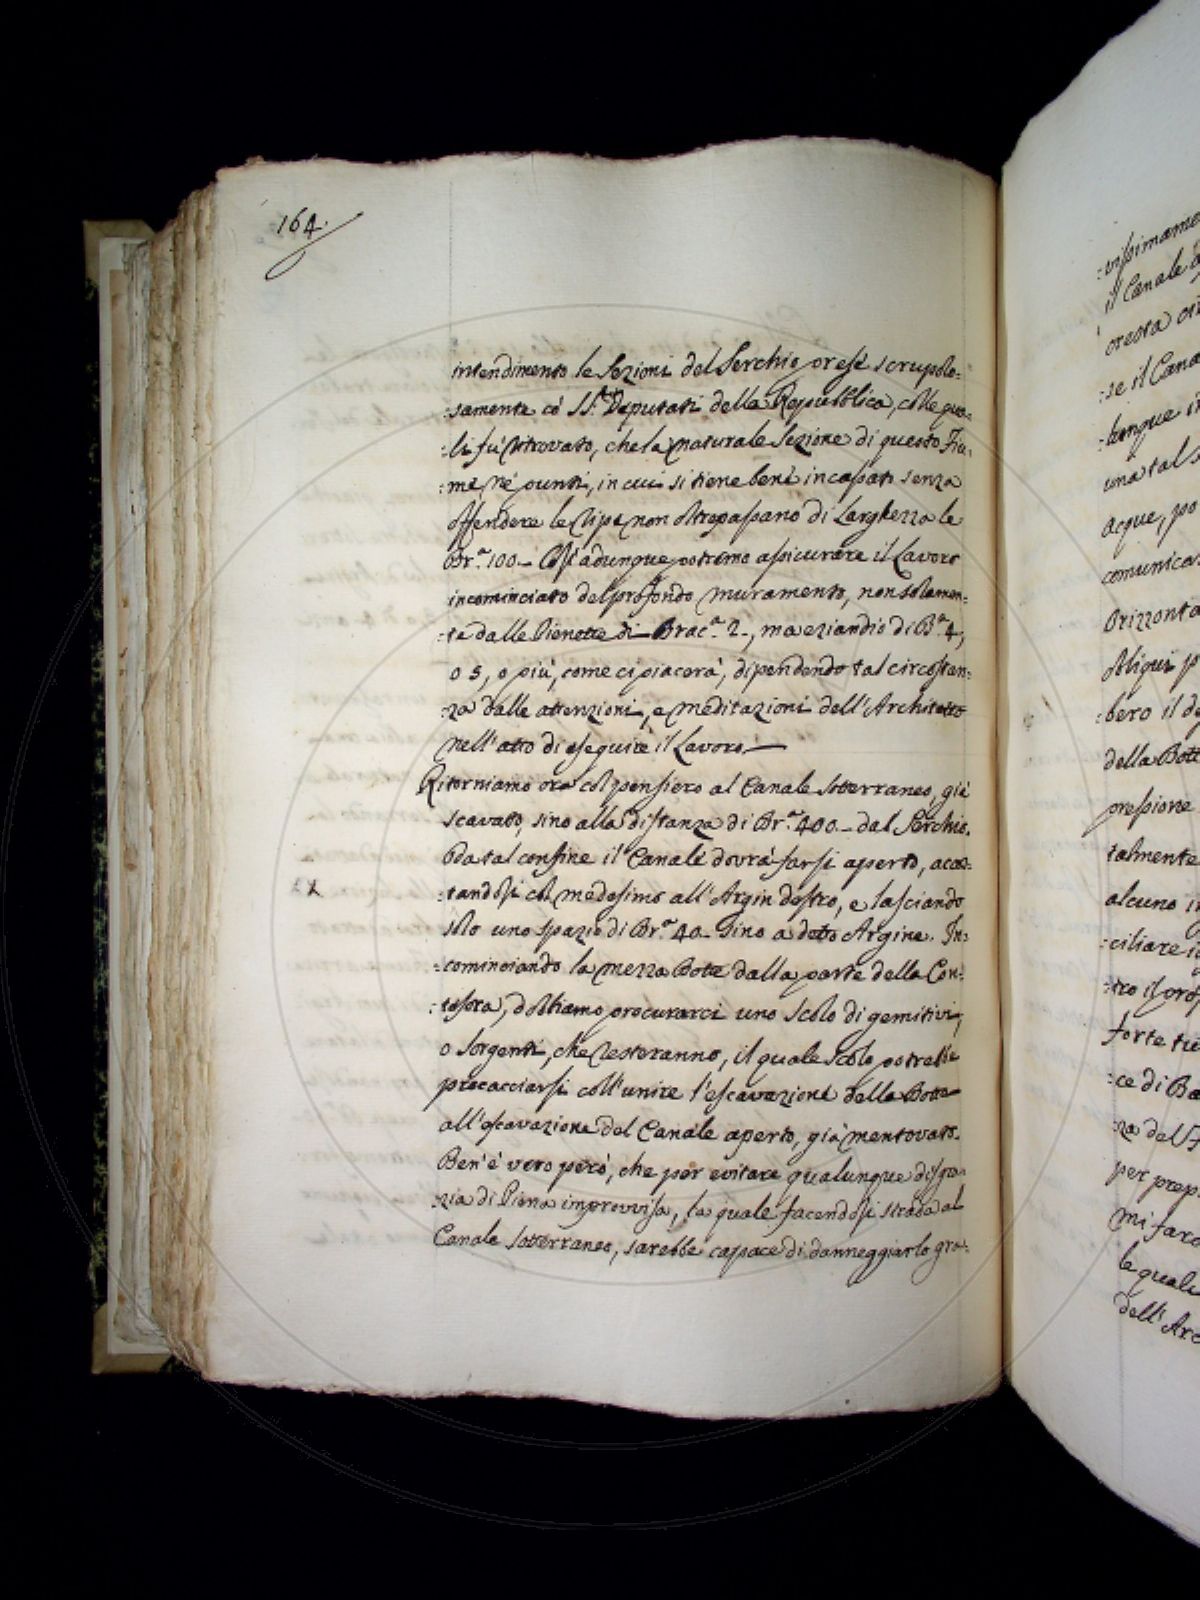 164.
intendimento le Sezioni del Serchio prese scrupolo=
=samente cò SS.ri Deputati della Repubblica, colle qua=
=li fù ritrovato, che la naturale Sezione di questo Fiu=
=me nè punti, in cui si tiene bene incassato senza
offendere le ripe non oltrepassano di Larghezza le
Br.a 100.- Così adunque potremo assicurare il Lavoro
incominciato del profondo muramento, non solamen=
=te dalle Pienette di Brac.a 2-, ma eziandio di B.a 4,
o 5, o più, come ci piacerà, dipendendo tal circostan=
=za dalle attenzioni, e meditazioni dell'Architetto
nell'atto di eseguire il Lavoro.—
Ritorniamo ora col pensiero al Canale sotterraneo, già
scavato, sino alla distanza di Br.a 400.- dal Serchio.
Da tal confine il Canale dovrà farsi aperto, acco=
=tandosi col medesimo all'Argin destro, e lasciando
solo uno spazio di Br.a 40- sino a detto Argine. In=
=cominciando la mezza Botte dalla parte della Con=
=tesora, dobbiamo procurarci uno scolo di gemitivi,
o Sorgenti, che resteranno, il quale scolo potrebbe
procacciarsi coll'unire l'escavazione della Botte
all'escavazione del Canale aperto, già mentovato.
Ben'è vero però, che per evitare qualunque disgra=
=zia di Piena improvvisa, la quale facendosi strada al
Canale sotterraneo, sarebbe capace di danneggiarlo gra=
=vissimame
il Canale
se il Cana
una tal s
acque, po
comunica
Orizzonta
Obliqui p
=bero il de
della Bott
pressione
talmente
alcuno i
=ciliare i
=tro il prof
forte tu
=ce di Ba
=za del F
per prep
mi farò
le quali
dell'Arc